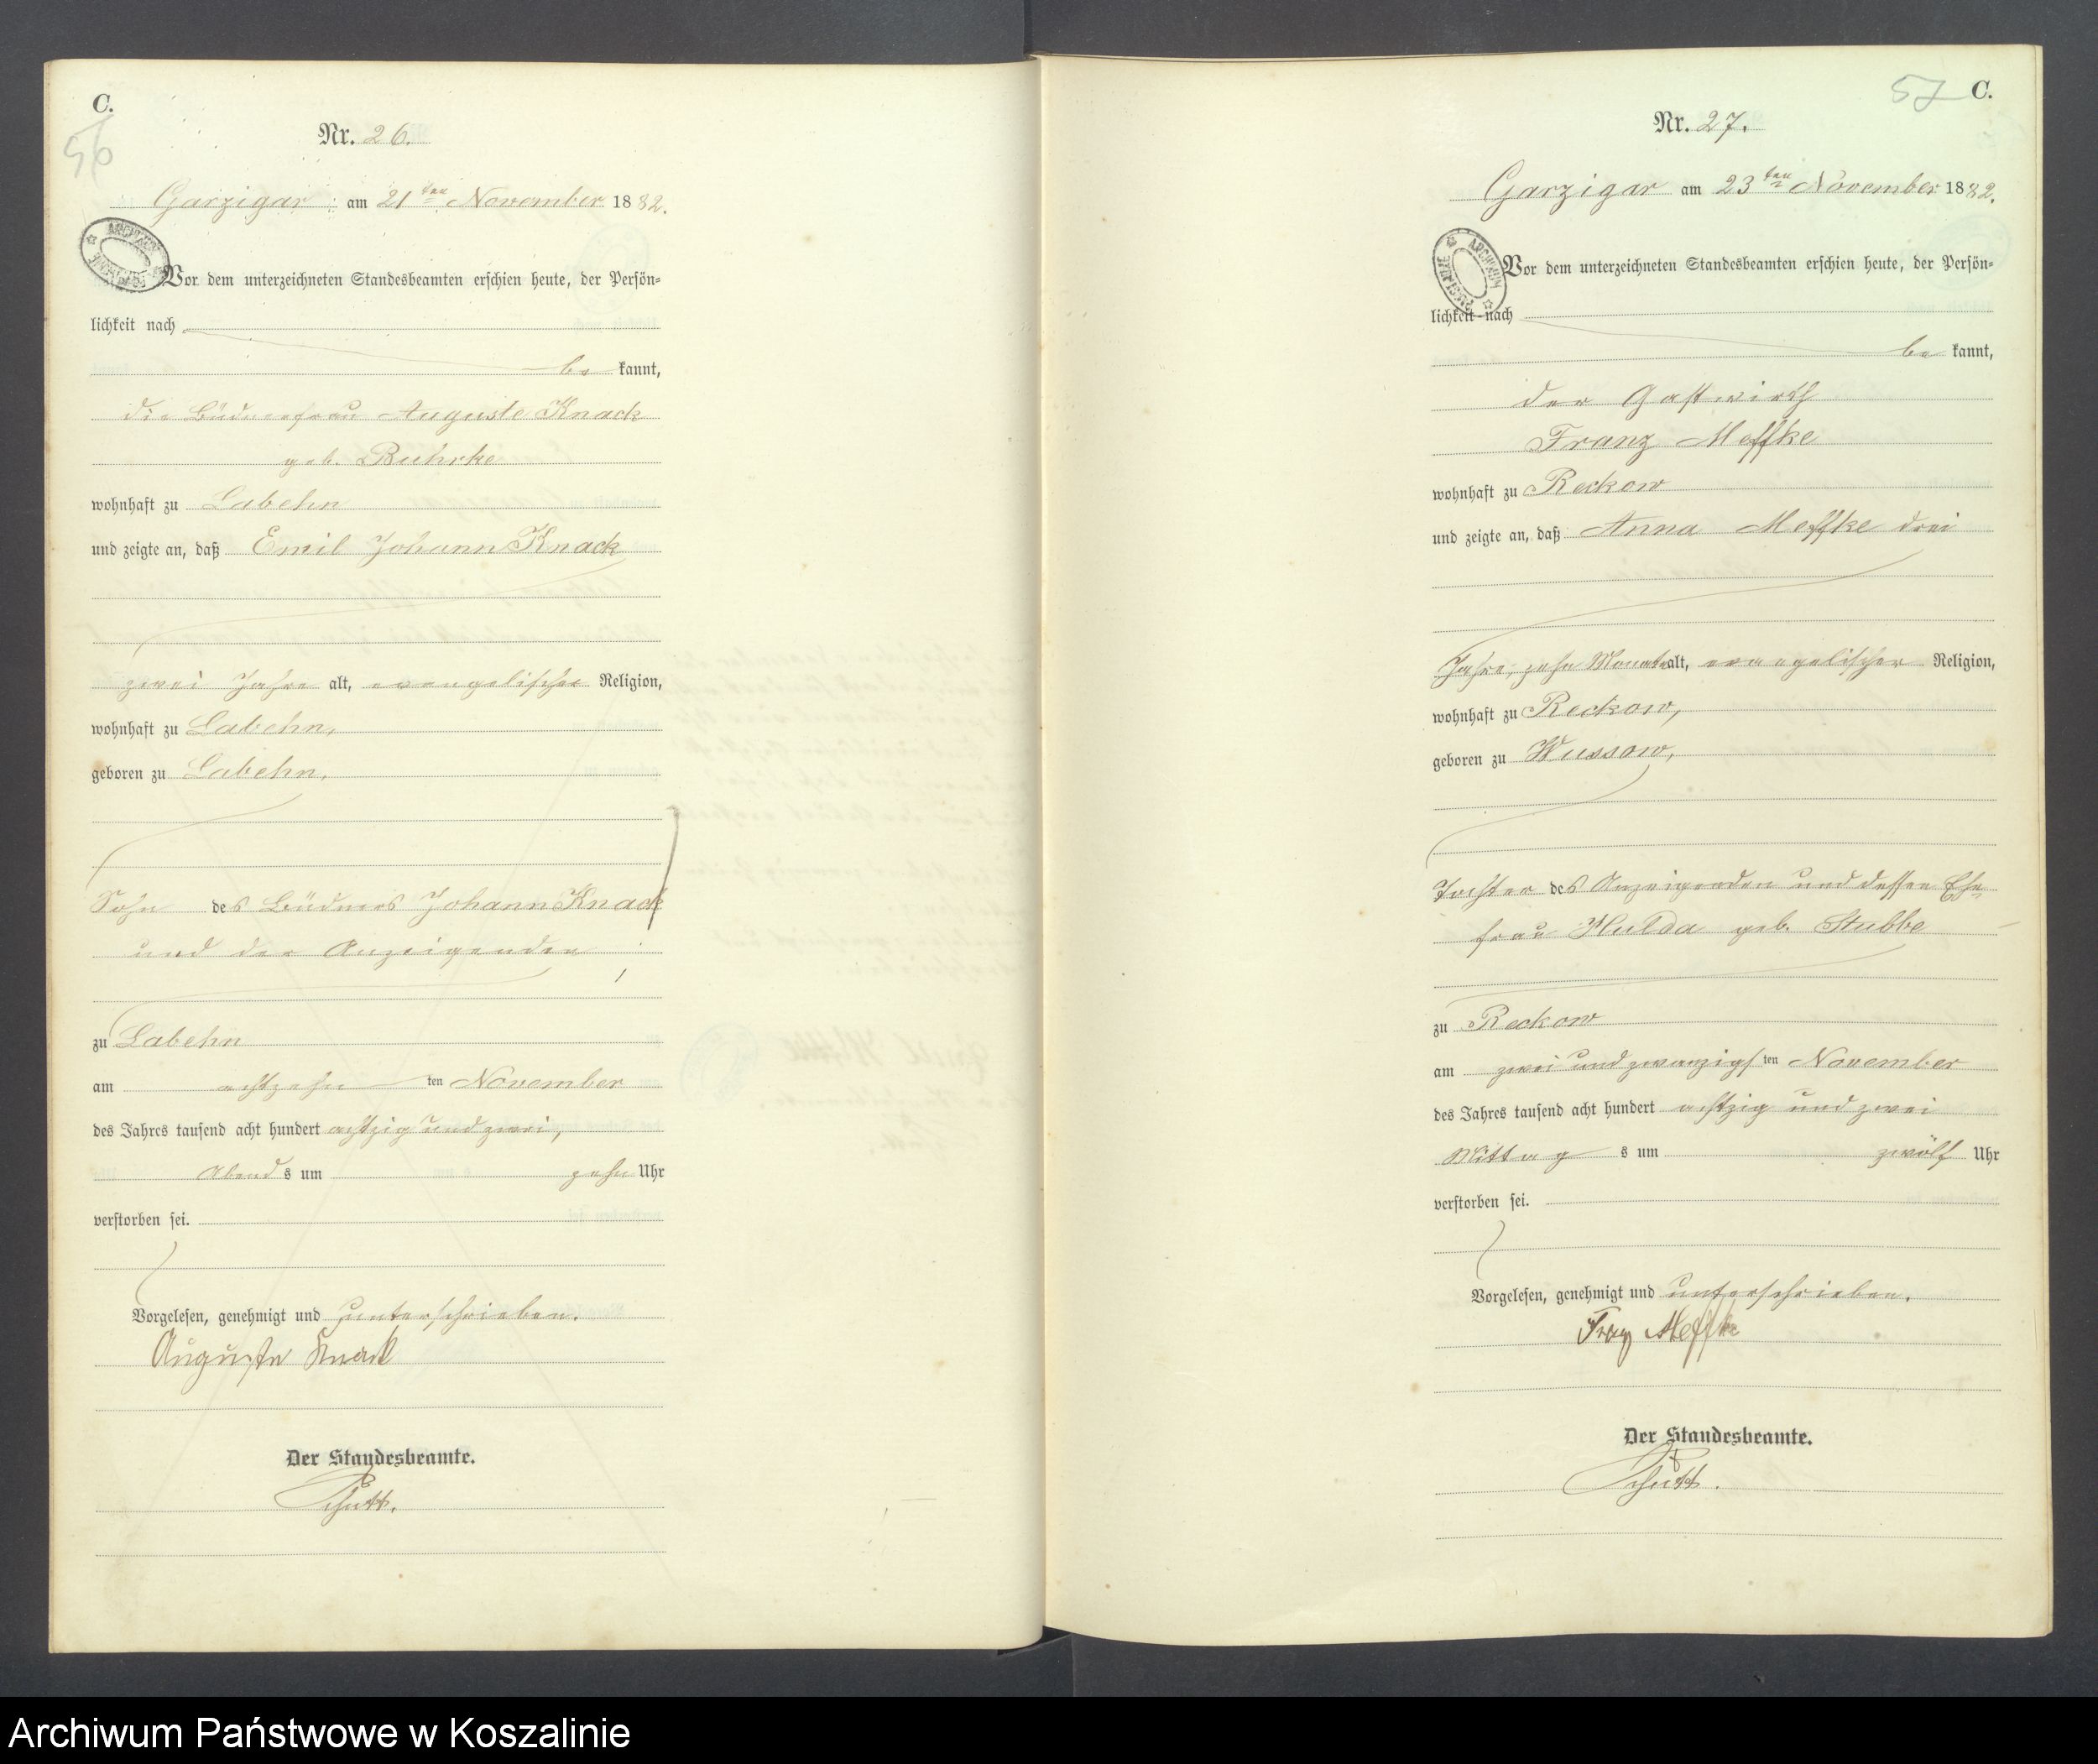 C.
56
Nr. 26.
Garzigar am 21ten November 1882.
ARCHIWUM PAŃSTWOWE
Vor dem unterzeichneten Standesbeamten erschien heute, der Persön=
lichkeit nach
be kannt,
die Büdnerfrau Auguste Knack
geb. Buhrke
wohnhaft zu Labehn
und zeigte an, daß Emil Johann Knack
zwei Jahre alt, evangelischer Religion,
wohnhaft zu Labehn,
geboren zu Labehn,
Sohn des Büdners Johann Knack
und der Anzeigenden
zu Labehn
am achtzehn ten November
des Jahres tausend acht hundert achtzig und zwei,
Abend s um zehn Uhr
verstorben sei.
Vorgelesen, genehmigt und unterschrieben.
Auguste Knack
Der Standesbeamte.
Schutt.
57 C.
Nr. 27.
Garzigar am 23ten November 1882.
ARCHIWUM PAŃSTWOWE
Vor dem unterzeichneten Standesbeamten erschien heute, der Persön=
lichkeit nach
be kannt,
der Gastwirth
Franz Meffke
wohnhaft zu Reckow
und zeigte an, daß Anna Meffke drei
Jahre, zehn Monate alt, evangelischer Religion,
wohnhaft zu Reckow,
geboren zu Wussow,
Tochter des Anzeigenden und dessen Ehe=
frau Hulda geb. Stubbe
zu Reckow
am zwei und zwanzigs ten November
des Jahres tausend acht hundert achtzig und zwei
Mittag s um zwölf Uhr
verstorben sei.
Vorgelesen, genehmigt und unterschrieben.
Franz Meffke
Der Standesbeamte.
Schutt.
Archiwum Państwowe w Koszalinie